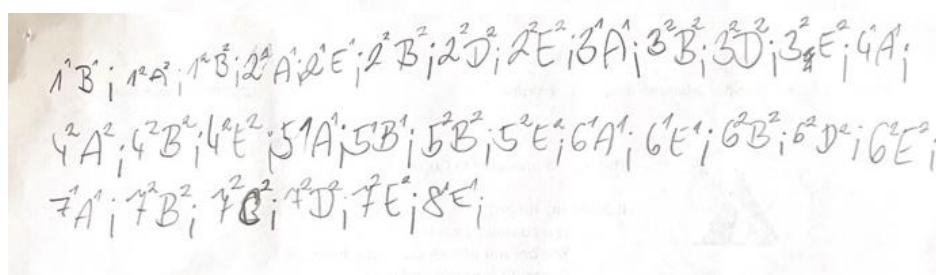 1¹B¹; 1²A²; 1²B²; 2¹A¹; 2¹E¹; 2²B²; 2²D²; 2²E²; 3¹A¹; 3²B²; 3²D²; 3²E²; 4¹A¹;
4²A²; 4²B²; 4²E²; 5¹A¹; 5¹B¹; 5²B²; 5²E²; 6¹A¹; 6¹E¹; 6²B²; 6²D²; 6²E²;
7¹A¹; 7²B²; 7²C²; 7²D²; 7²E²; 8¹E¹;